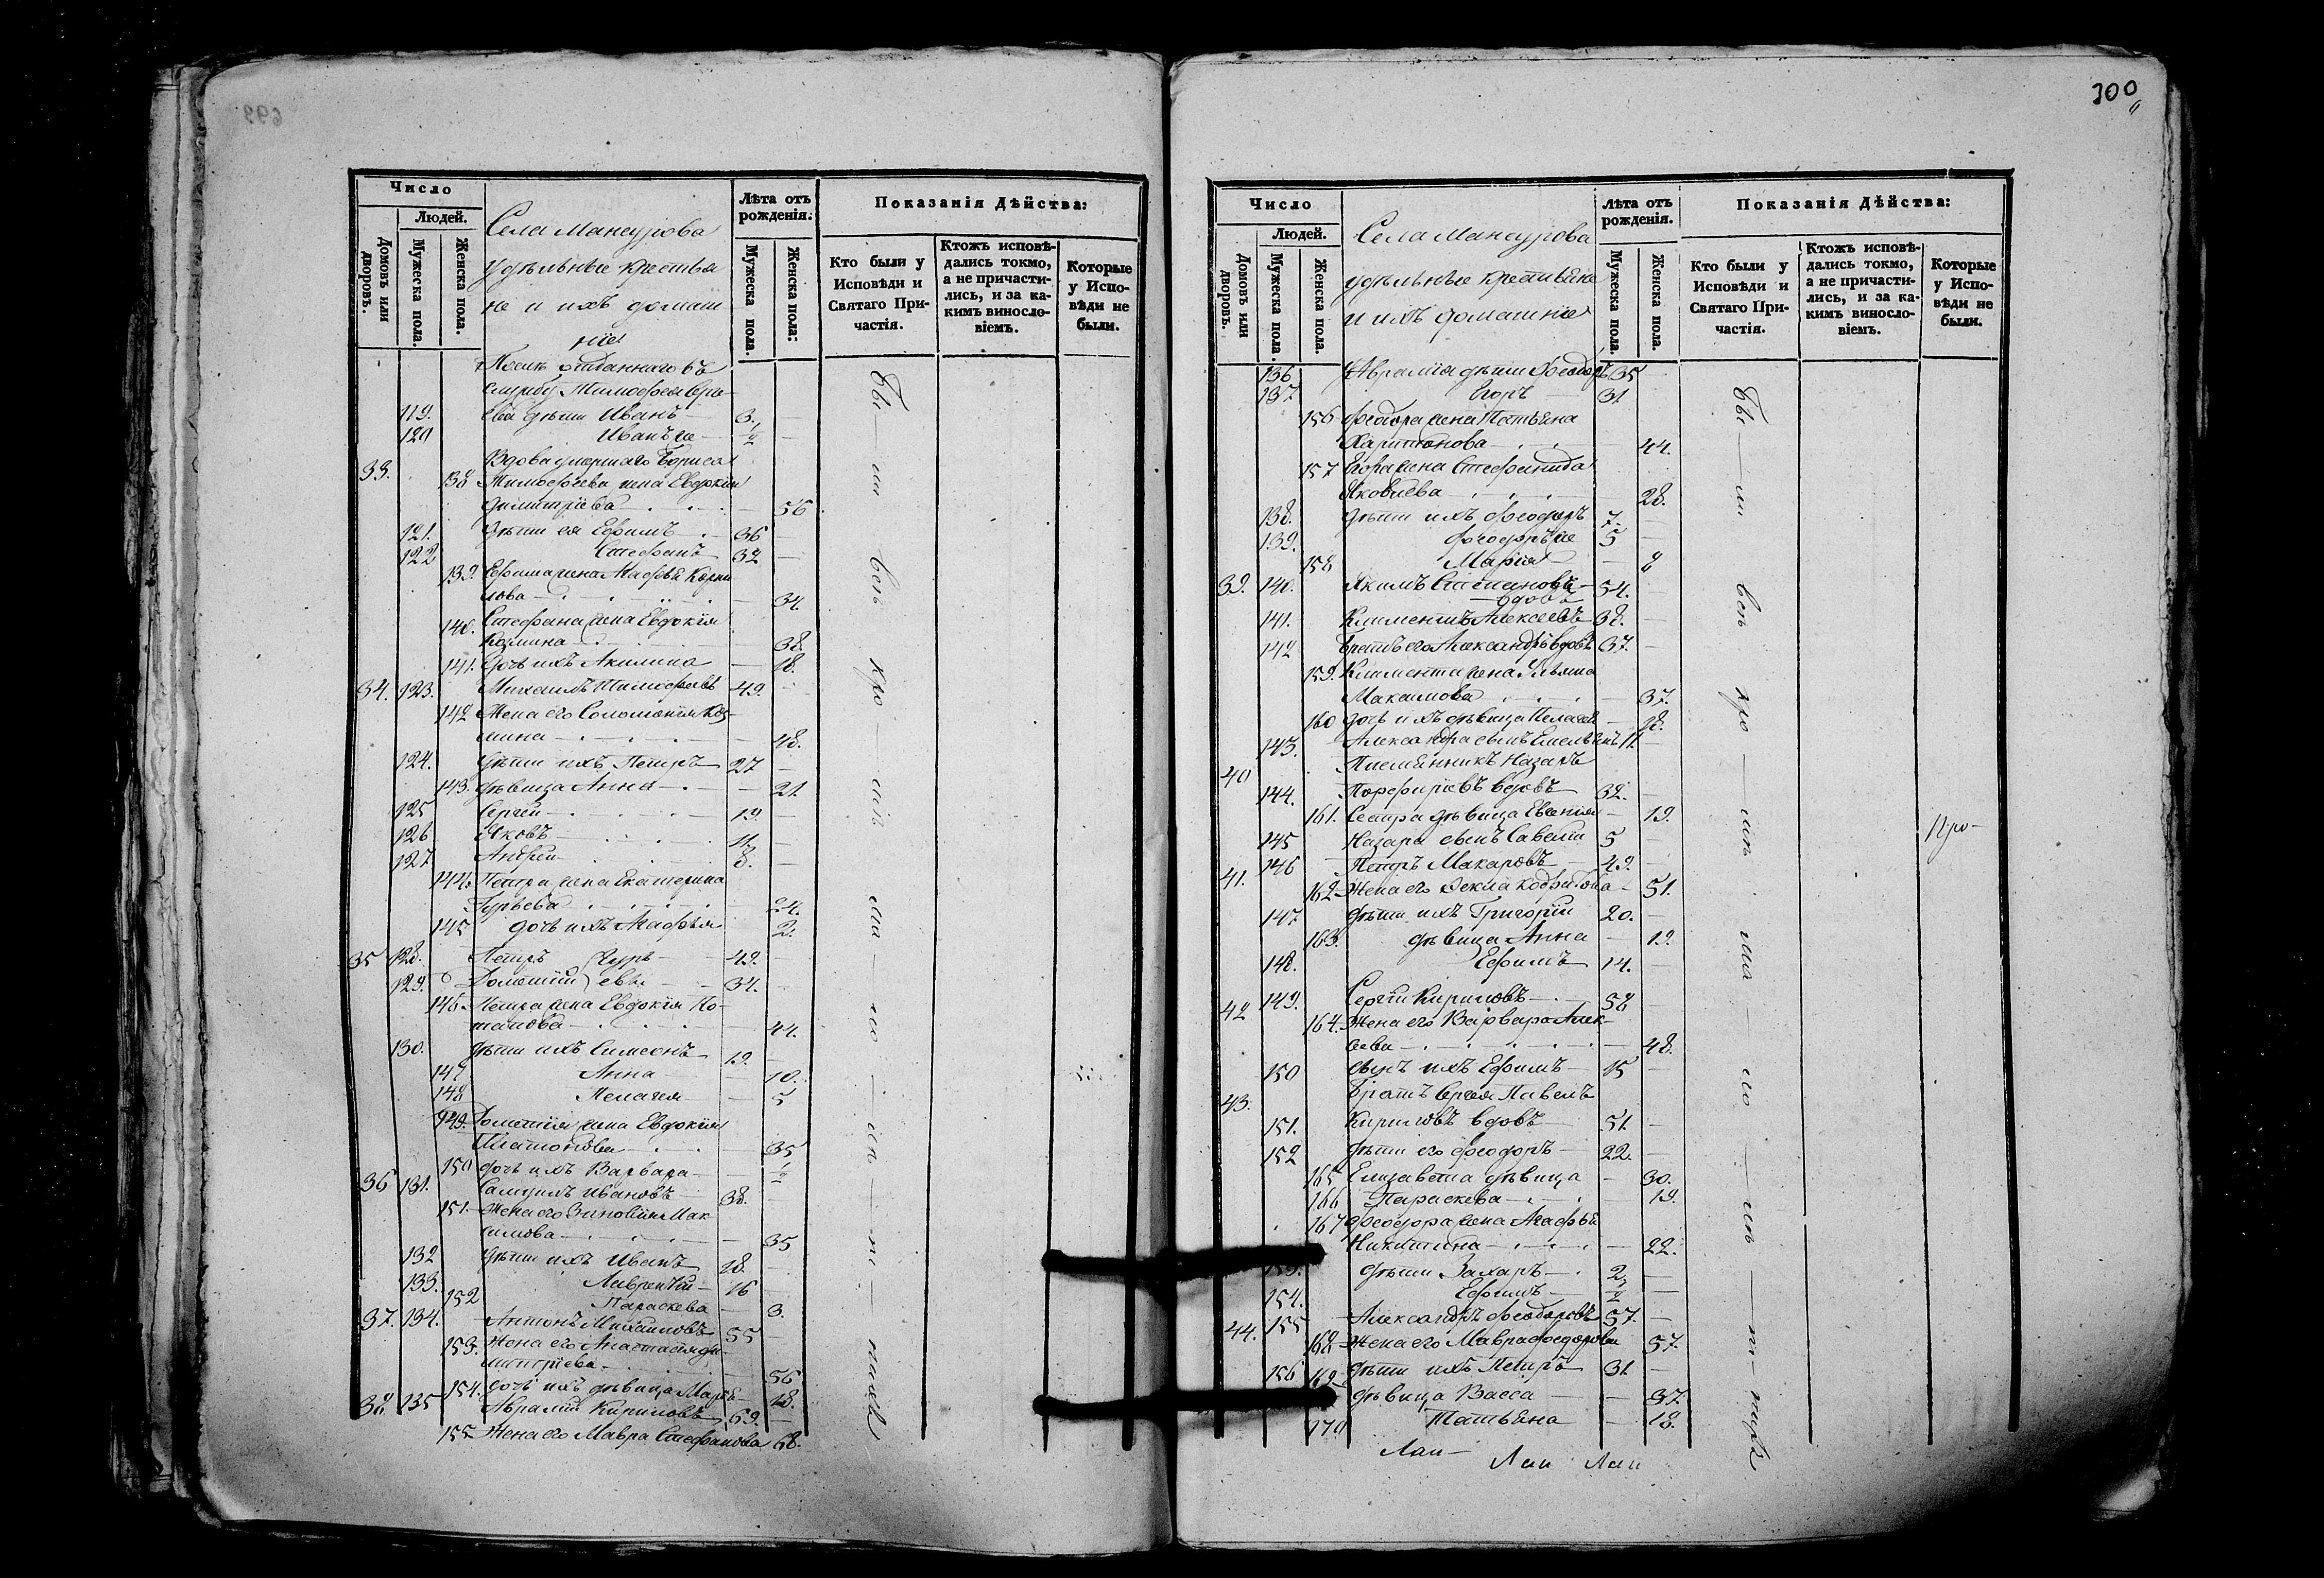 699
Число
Людей.
Домовъ или дворовъ.
Мужеска пола.
Женска пола.
Села Мансурова
удѣльные крестья
не и ихъ домаш
ніе
Лѣта отъ рожденія.
Мужеска пола.
Женска пола:
Показанія Дѣйства:
Кто были у Исповѣди и Святаго Причастія.
Ктожъ исповѣдались токмо, а не причастились, и за какимъ винословіемъ.
Которые у Исповѣди не были.
отданнаго въ
службу Тимофея
119. дѣти Иванъ 3.
120 Иванъ же ½
33. Вдова умершаго Бориса
138 Тимофеева жена Евдокія
Димитріева 56
121. Дѣти ея Ефимъ 36
122 Стефанъ 32
139. Ефима жена Агафья Корни
лова 34.
140. Стефана жена Евдокія
Козмина 38.
141. Дочь ихъ Акилина 18.
34. 123. Михаилъ Тимофеевъ 49.
142 Жена его Соломонія Коз
мина 48.
124. Дѣти ихъ Петръ 27
143. дѣвица Анна 21
125 Сергей 19.
126 Яковъ 11
127 Андрей 8.
144. Петра жена Екатерина
Гурьева 24.
145 дочь ихъ Агафья 2.
35 128. Петръ Гурь- 49.
129. Дометій евы 34.
146. Петра жена Евдокія По-
тапова 44.
130. дѣти ихъ Симеонъ 19.
147 Анна 10.
148 Пелагея 5
149. Дометія жена Евдокія
Платонова 35
150 дочь ихъ Варвара ½
36 131. Самуилъ Ивановъ 38.
151. Жена его Зиновія Мак
симова 35
132 Дѣти ихъ Иванъ 18.
133. Лаврентій 16
152 Параскева 3.
37. 134. Антонъ Михайловъ 55
153. Жена его Анастасія Ди-
митріева 56
154. дочь ихъ дѣвица Марѳа 18.
38 135 Аврамій Кириловъ 69.
155. Жена его Мавра Стефанова 68.
300
Число
Людей.
Домовъ или дворовъ.
Мужеска пола.
Женска пола.
Села Мансурова
удѣльные крестьяне
и ихъ домашніе
Лѣта отъ рожденія.
Мужеска пола.
Женска пола.
Показанія Дѣйства:
Кто были у Исповѣди и Святаго Причастія.
Ктожъ исповѣдались токмо, а не причастились, и за какимъ винословіемъ.
Которые у Исповѣди не были.
136 Аврамія дѣти Феодоръ 35
137 Егоръ 31
156 Феодора жена Татьяна
Харитонова 44.
157 Егора жена Стефанида
Яковлева 28.
138. дѣти ихъ Феодоръ 7.
139. Феодоръ же 5
158 Марія 8
39. 140. Якимъ Степановъ 54.
вдовъ
141. Климентъ Алексеевъ 38.
142 Братъ его Александръ вдовъ 37.
159. Климента жена Ульяна
Максимова 37.
160 дочь ихъ дѣвица Пелагея 18.
143. Александра сынъ Емельянъ 11.
40 Племянникъ Назаръ
144. Порфирьевъ вдовъ 32.
161. Сестра дѣвица Евгенія 19.
145 Назара сынъ Савелій 5
41. 146 Петръ Макаровъ 49.
162 Жена его Фекла 51.
147 дѣти ихъ Григорій 20.
163. дѣвица Анна 19.
148. Ефимъ 14.
42 149. Сергій Кириловъ 58
164. Жена его Варвара Алек-
сеева 48.
150 сынъ ихъ Ефимъ 15
43. Братъ Сергея Павелъ
151. Кириловъ вдовъ 51.
152 дѣти его Феодоръ 22.
165 Елизавета дѣвица 30.
166 Параскева 19.
167 Феодора жена Агафья
Никитина 22.
153. дѣти Захаръ 2
154. Ефимъ ½
44. 155 Александръ Феодоровъ 57.
168 Жена его Мавра Феодорова 57.
156 дѣти ихъ Петръ 31.
169 дѣвица Васса 37.
170 Татьяна 18.
Про-